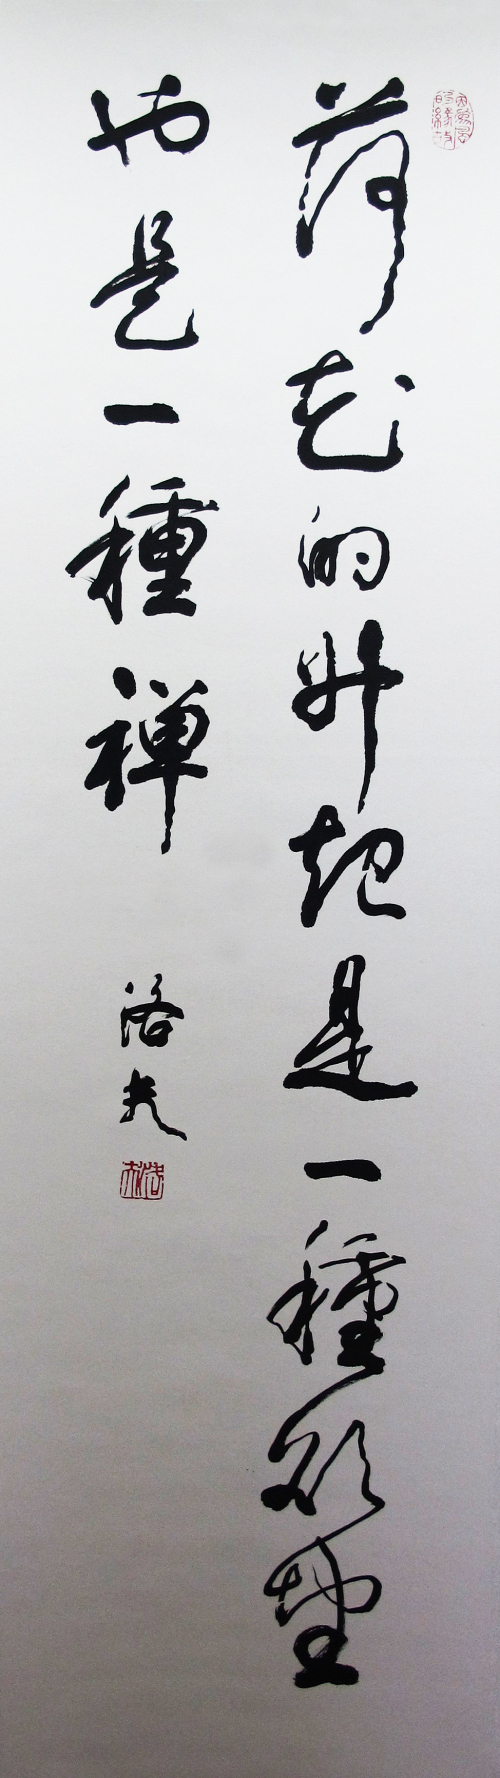 荷花的昇起是一種欲望
也是一種禪
洛夫